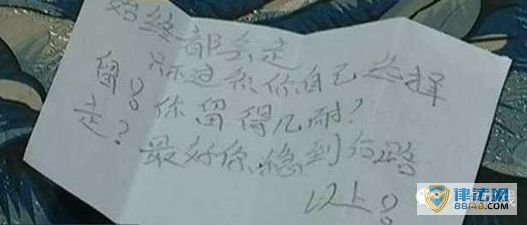 始终都会走
只不过系你自己选择
留?你留得几耐?
走?最好你谂到后路
以上
律法网
88148.com